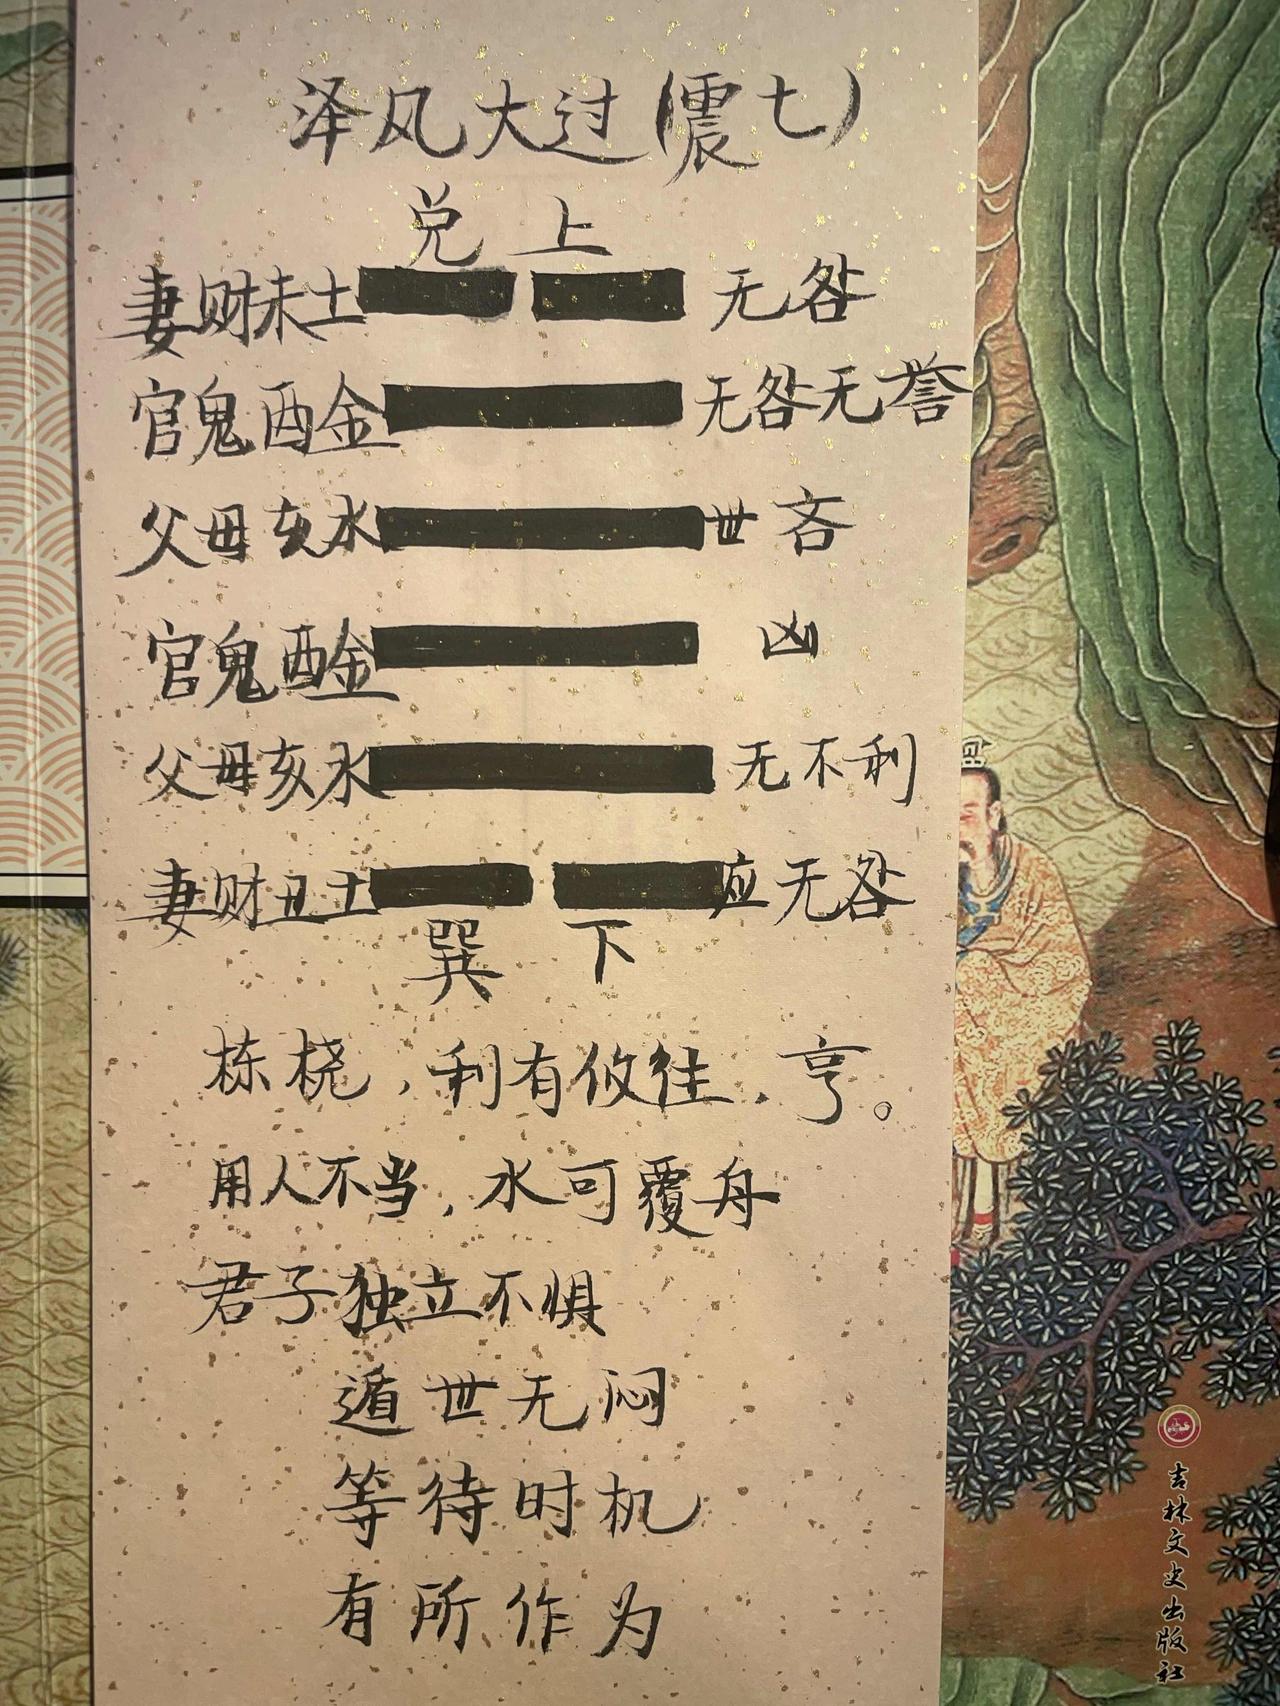 泽风大过(震七)
兑上
妻财未土 无咎
官鬼酉金 无咎无誉
父母亥水 世吝
官鬼酉金 凶
父母亥水 无不利
妻财丑土 应无咎
巽下
栋桡,利有攸往,亨。
用人不当,水可覆舟
君子独立不惧
遁世无闷
等待时机
有所作为
吉林文史出版社